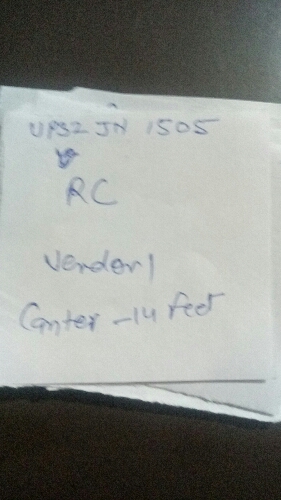 UP32 JN 1505
RC
Vendor 1
Canter - 14 feet